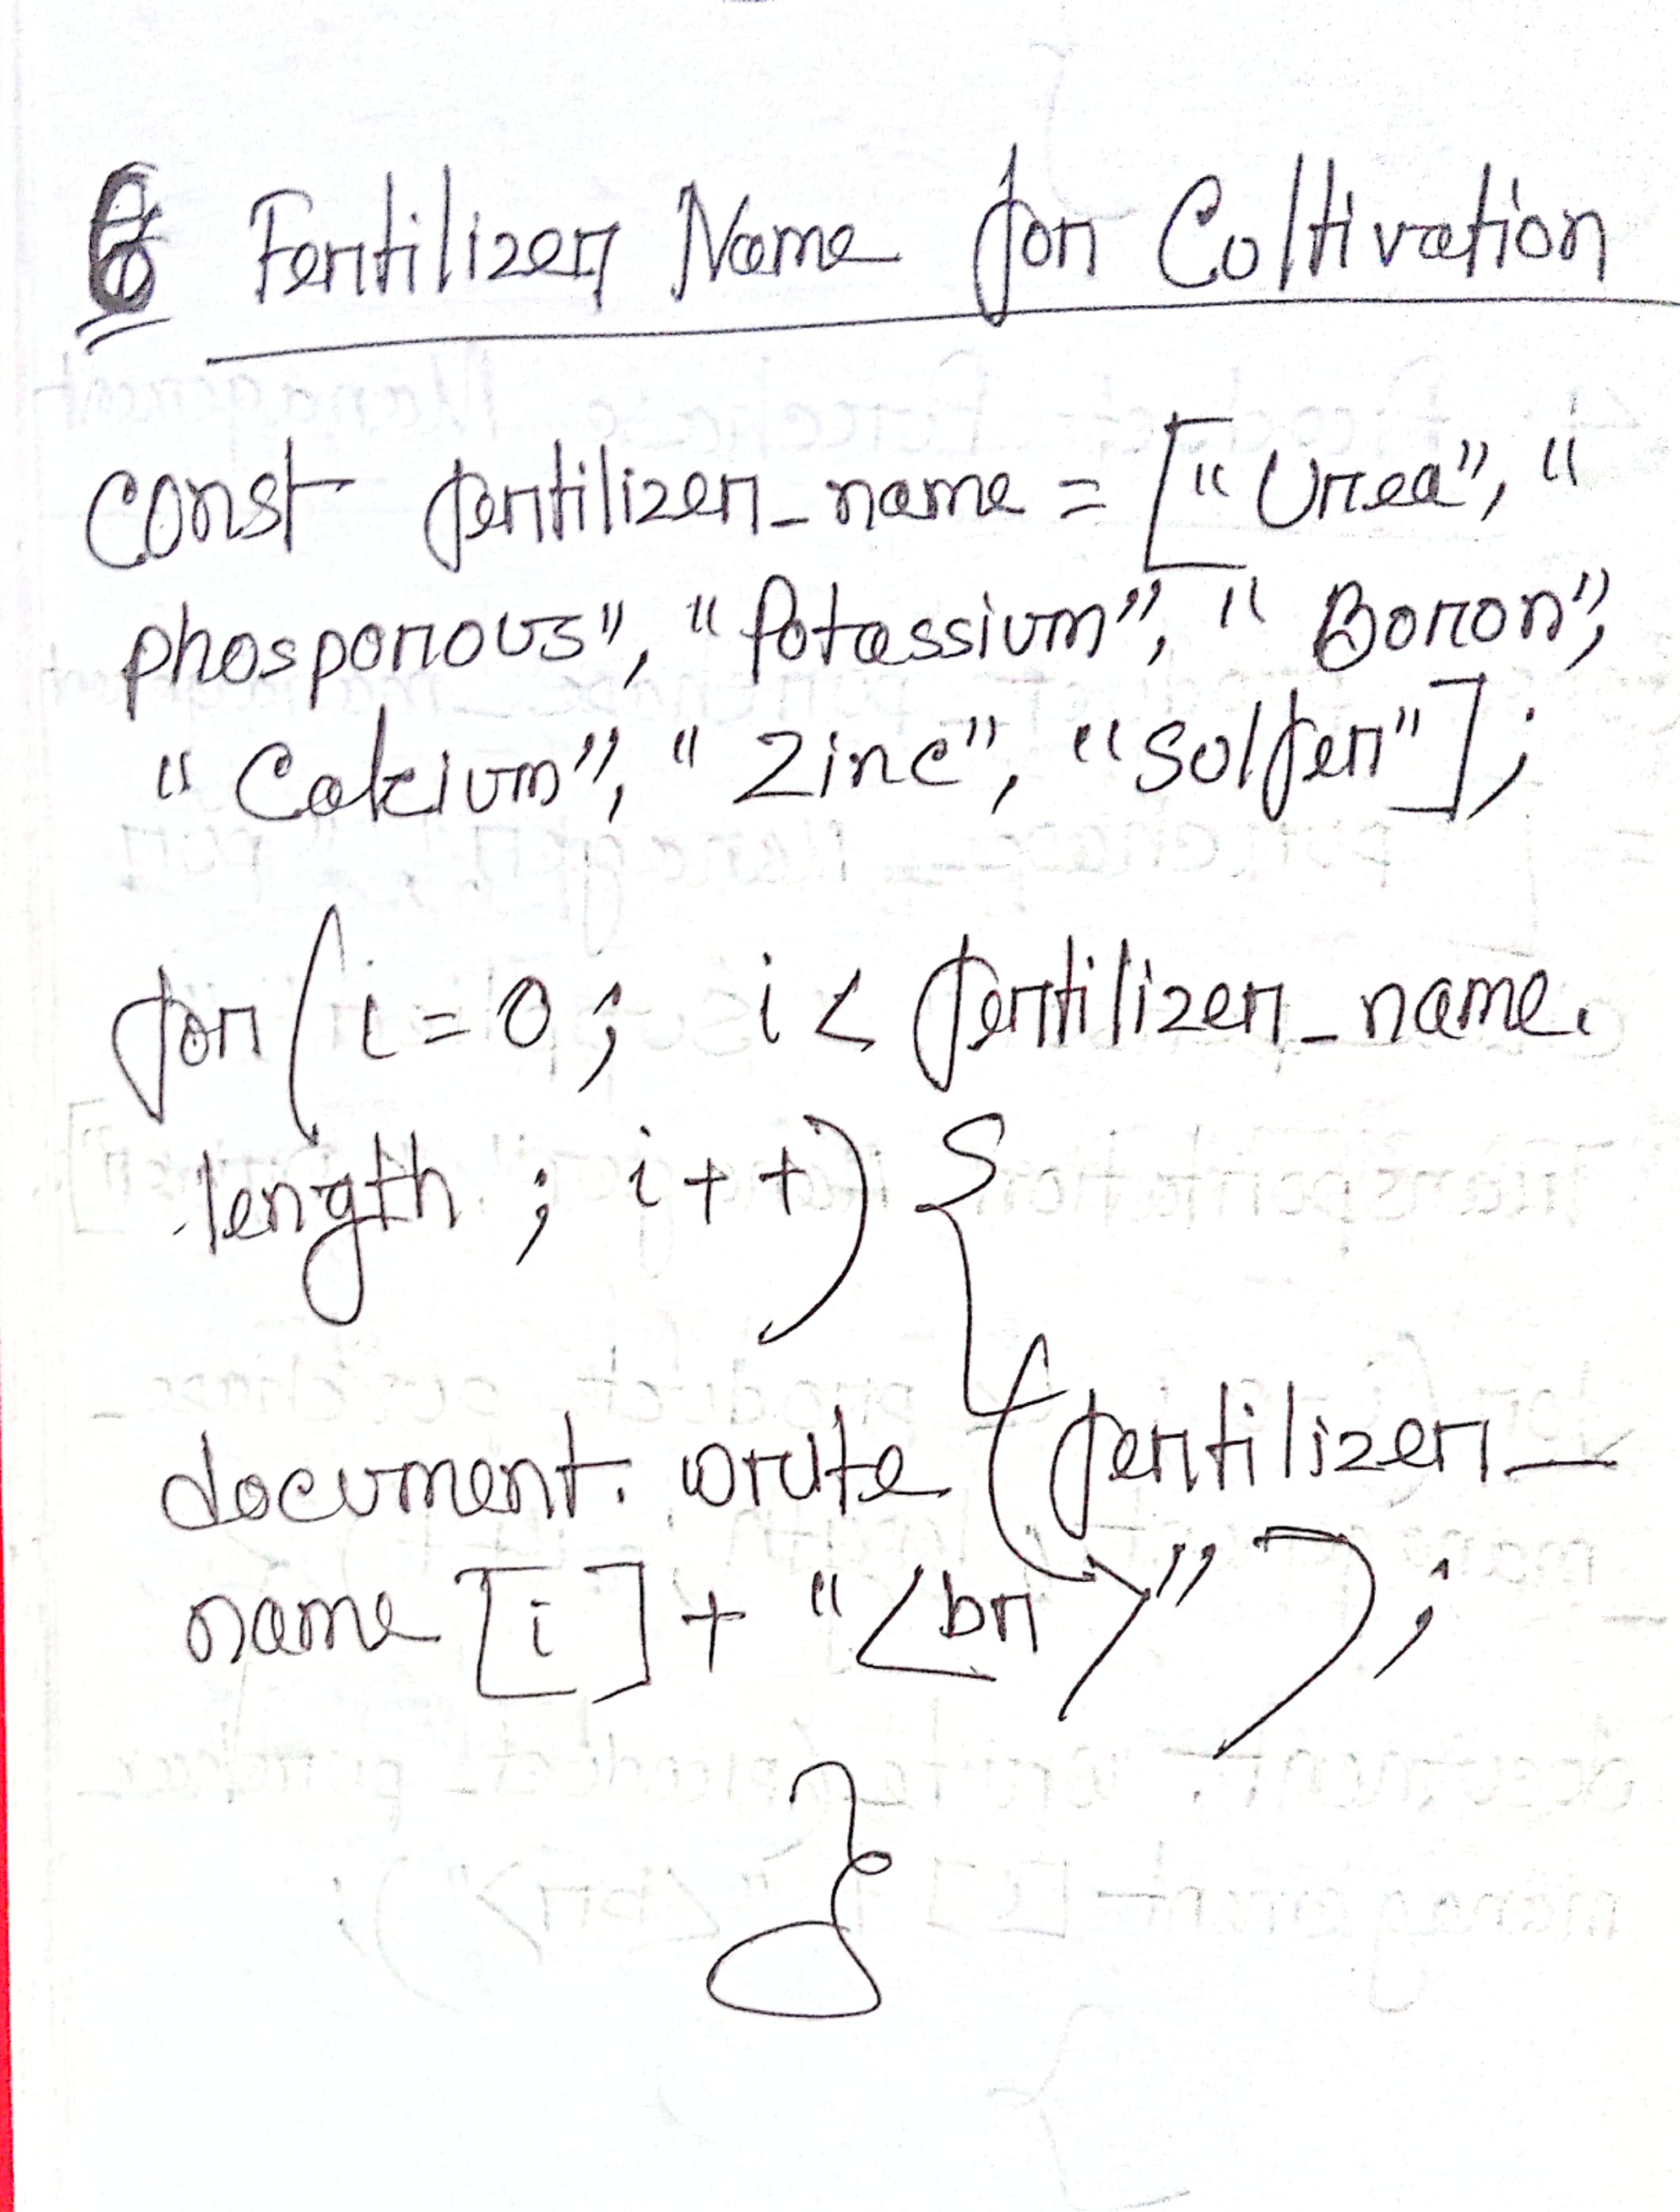 6 Fertilizer Name for Cultivation
const fertilizer_name = ["Urea", "
phosporous", "Potassium", "Boron",
"Calcium", "Zinc", "Sulfer"];
for(i=0; i< fertilizer_name.
length; i++) {
document.write(fertilizer_
name[i]+"<br>");
}